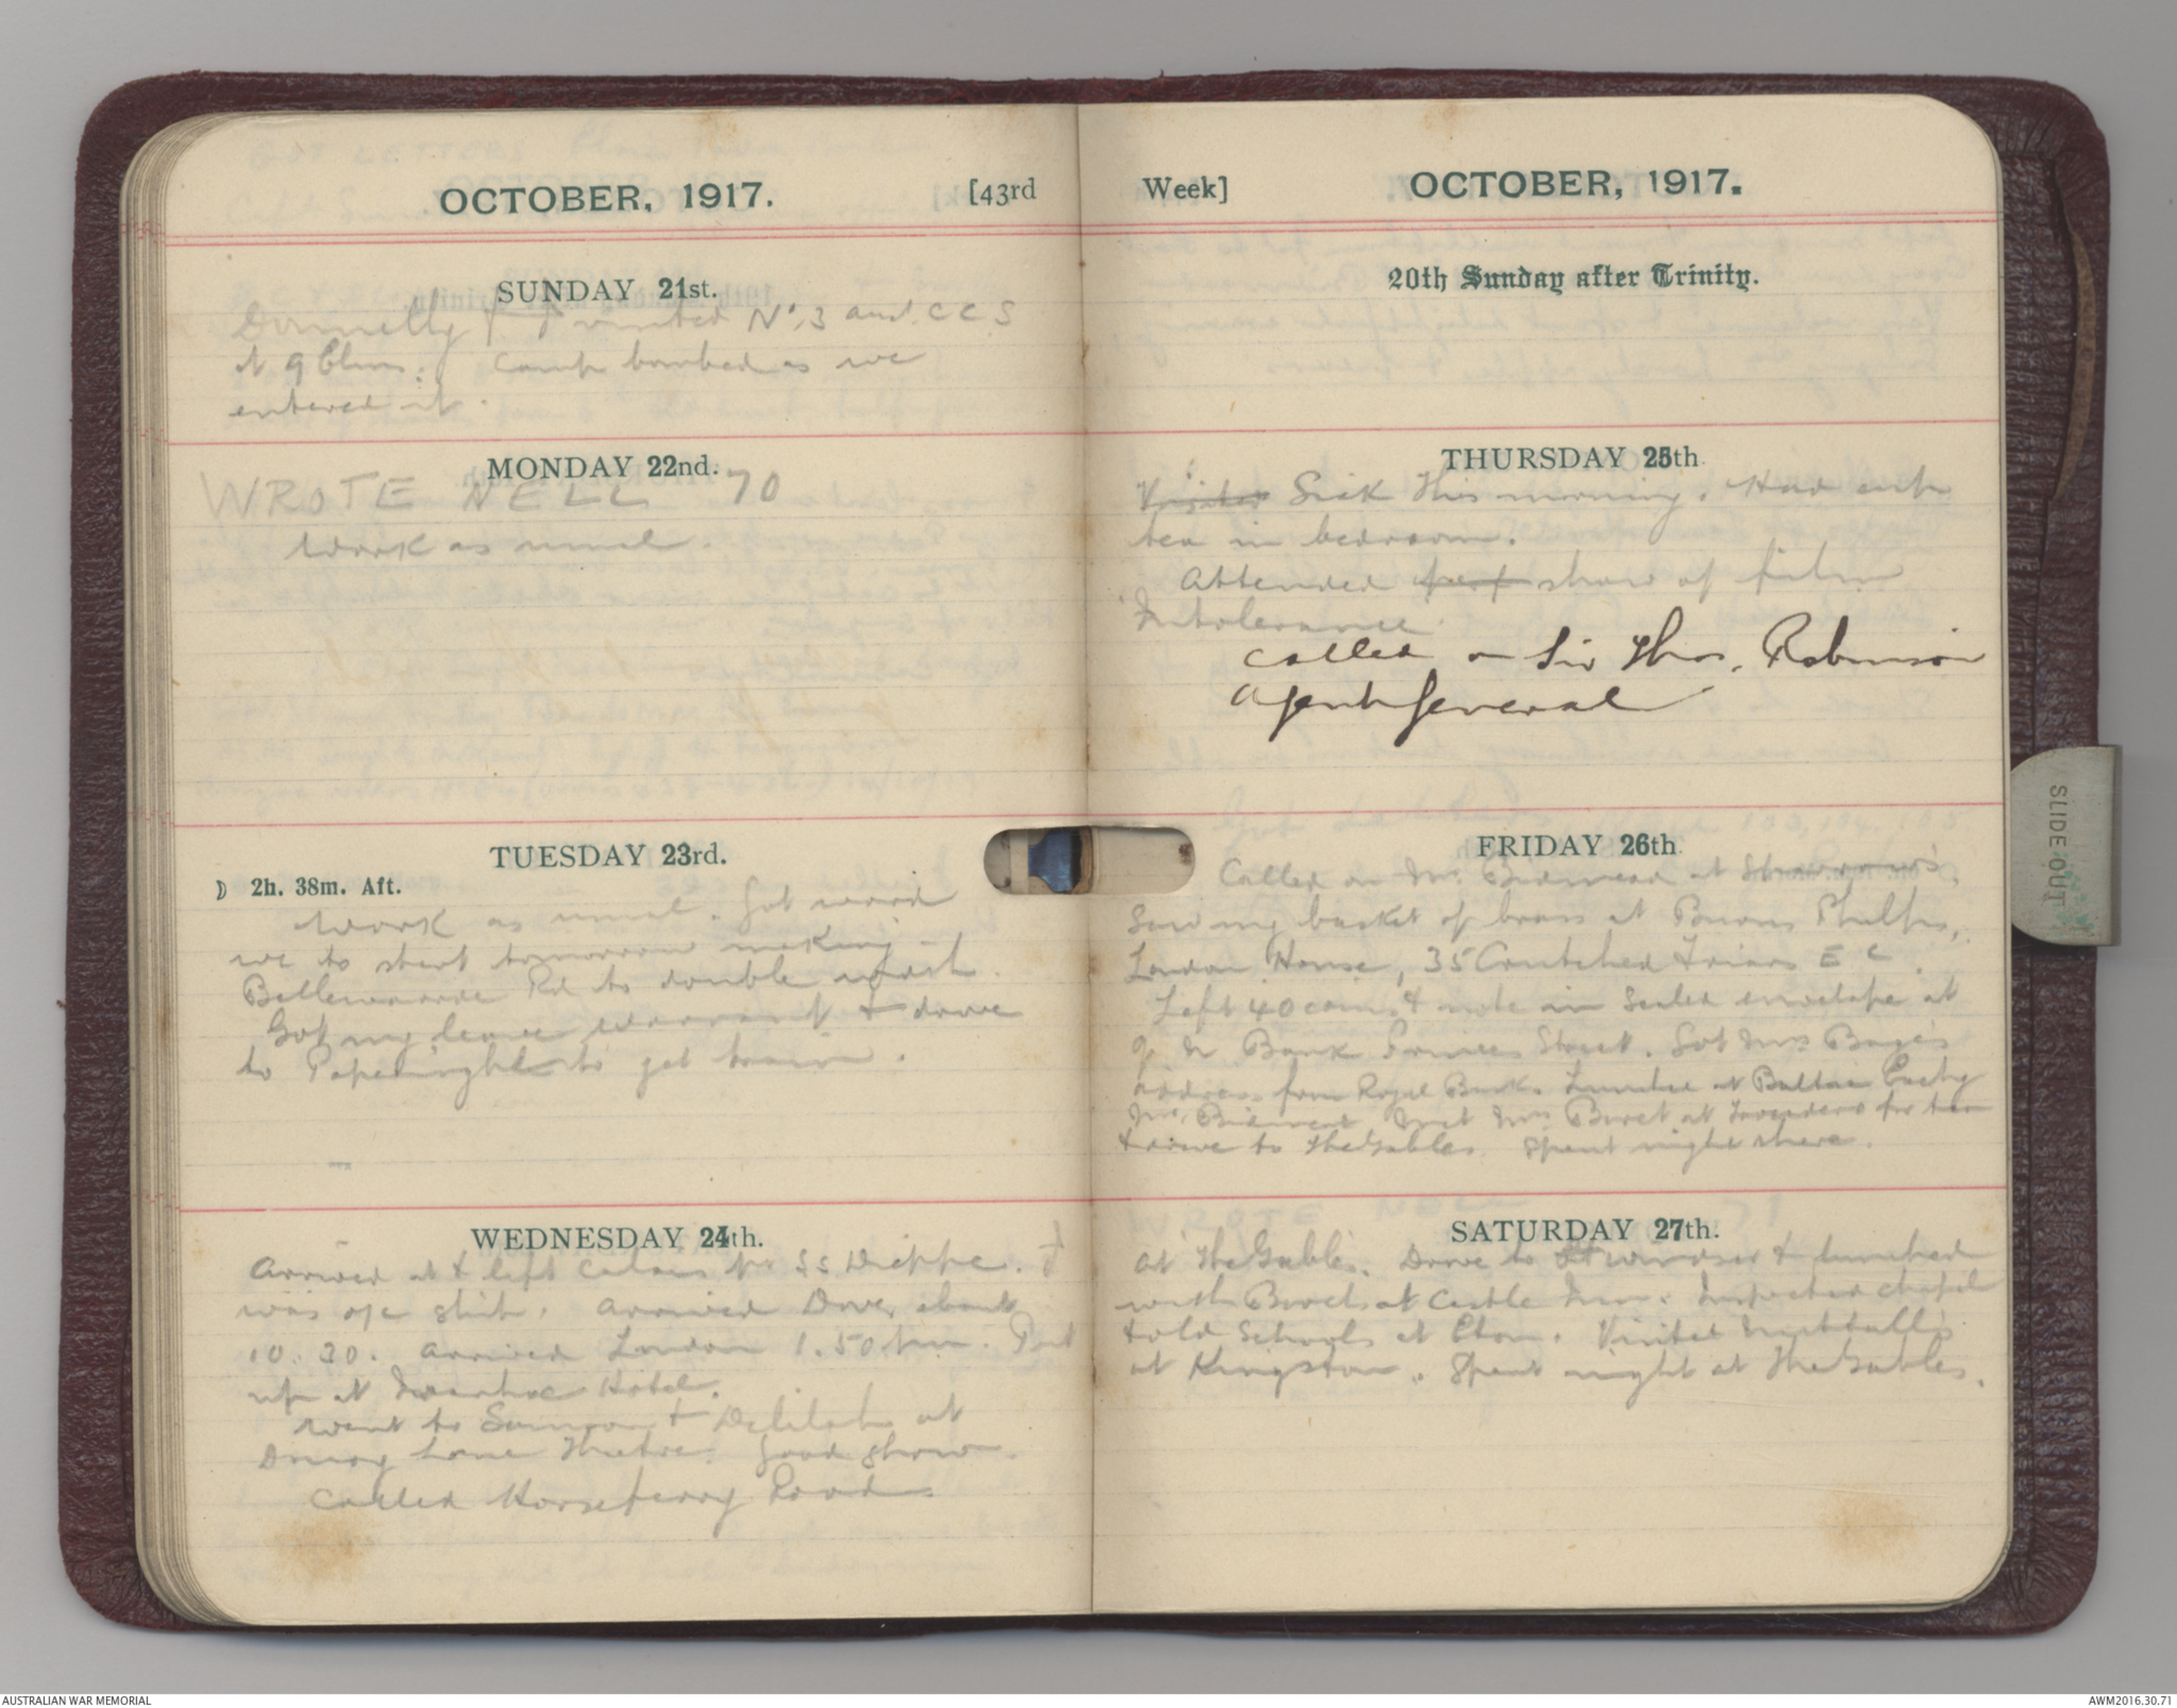 OCTOBER, 1917. [43rd
SUNDAY 21st.
Donnelly & I visited No. 3 Aust. C C S
at 9 Elms. Camp bombed as we
entered it.
MONDAY 22nd.
WROTE NELL 70
Work as usual.
TUESDAY 23rd.
☽ 2h. 38m. Aft.
Work as usual. Got word
we to start tomorrow making
Bellewaarde Rd to double width.
Got my leave warrant & drove
to Poperinghe to get train.
WEDNESDAY 24th.
Arrived at & left Calais per SS Dieppe. I
was o/c ship. Arrived Dover about
10.30. Arrived London 1.50 pm. Put
up at Ivanhoe Hotel.
Went to Samson & Delilah at
Drury Lane Theatre. Good show.
Called Horseferry Road
Week] OCTOBER, 1917.
20th Sunday after Trinity.
THURSDAY 25th
Visited Sick this morning. Had cup
tea in bedroom.
Attended perf show of film
Intolerance
Called on Sir Thos. Robinson
Agent General
FRIDAY 26th.
Called on Mr. at
Saw my basket of brass at Burns Philps,
London House, 35 Crutched Friars E C.
Left 40 coins & note in sealed envelope at
Q N Bank Princes Street. Got Mrs Bage's
address from Royal Bank. Lunched at Baltic
Mr. Met Mrs Buret at for tea
& drive to The Gables. Spent night there.
SATURDAY 27th.
WROTE NELL 71
At The Gables. Drove to Windsor & lunched
with at Castle Inn. Inspected chapel
& old schools at Eton. Visited Nuthall's
at Kingston. Spent night at The Gables.
SLIDE OUT
AUSTRALIAN WAR MEMORIAL
AWM2016.30.71